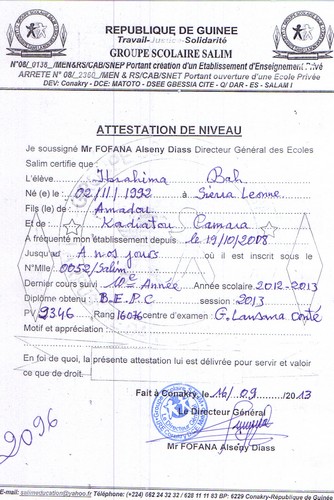 REPUBLIQUE DE GUINEE
Travail-Justice-Solidarité
GROUPE SCOLAIRE SALIM
N°08/_0138_/MEN&RS/CAB/SNET Portant création d'un Etablissement d'Enseignement Privé
ARRETE N° 08/_2380_/MEN & RS/CAB/SNET Portant ouverture d'une Ecole Privée
DEV: Conakry - DCE: MATOTO - DSEE GBESSIA CITE - Q/ DAR - ES - SALAM I
ATTESTATION DE NIVEAU
Je soussigné Mr FOFANA Alseny Diass Directeur Général des Ecoles
Salim certifie que :
L'élève Ibrahima Bah
Né (e) le : 02/11/1992 à Sierra Leonne
Fils (le) de : Amadou
Et de : Kadiatou Camara
A fréquenté mon établissement depuis le 19/10/2008
Jusqu'au A nos jours où il est inscrit sous le
N°Mlle 0052/Salim
Dernier cours suivi 10e Année Année scolaire 2012-2013
Diplôme obtenu : B.E.P.C session 2013
PV 9346 Rang 16076 centre d'examen : G. Lansana Conté
Motif et appréciation :
En foi de quoi, la présente attestation lui est délivrée pour servir et valoir
ce que de droit.
Fait à Conakry, le 16/09/2013
Le Directeur Général
Mr FOFANA Alseny Diass
2096
E-mail: salimeducation@yahoo.fr Téléphone: (+224) 662 24 32 32 / 628 11 11 83 BP: 6229 Conakry-République de Guinée